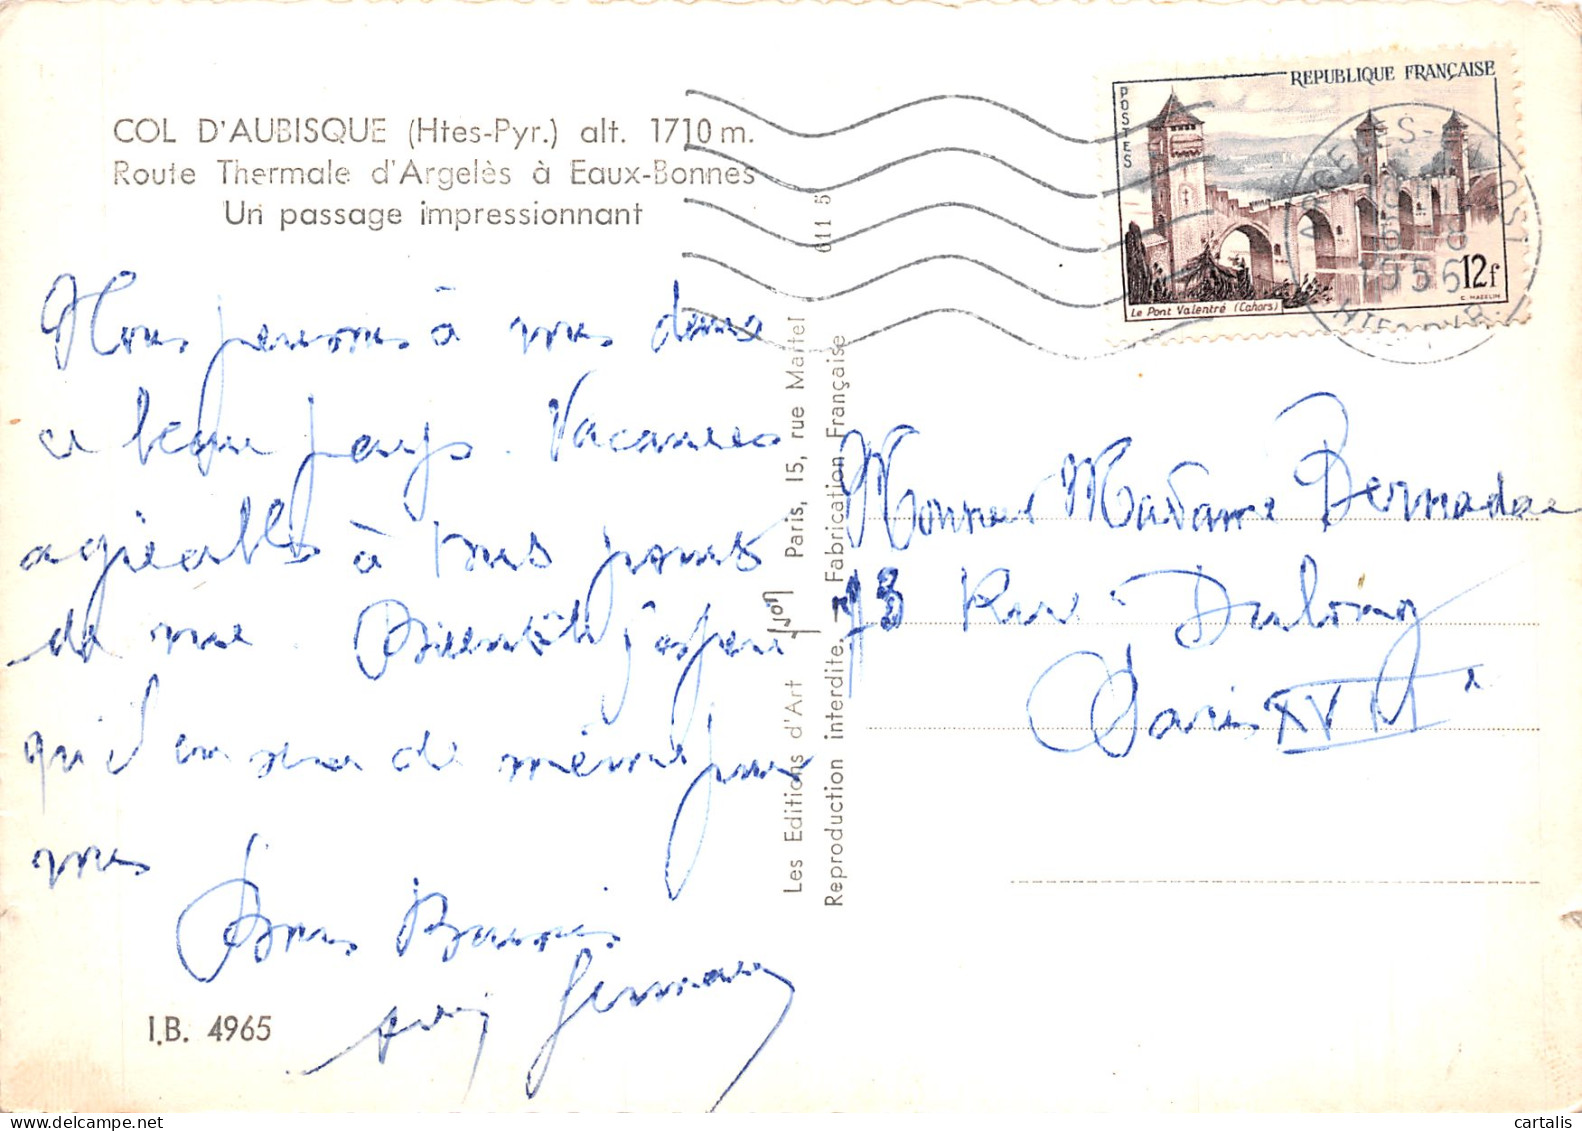 COL D'AUBISQUE (Htes-Pyr.) alt. 1710 m.
Route Thermale d'Argelès à Eaux-Bonnes
Un passage impressionnant
Nous pensons à vous dans
ce beau pays. Vacances
agréables à tous points
de vue. Bientôt j'espère
qu'il en sera de même pour
vous
Bons Baisers
Germaine
I.B. 4965
Les Editions d'Art YVON Paris, 15, rue Martel
Reproduction interdite. - Fabrication Française
611 5
REPUBLIQUE FRANÇAISE
POSTES
12f
Le Pont Valentré (Cahors)
C. MAZELIN
ARGELES-
1956
HTES PYR.
Monsieur Madame Bernadac
73 Rue Dulong
Paris XVII
cartalis